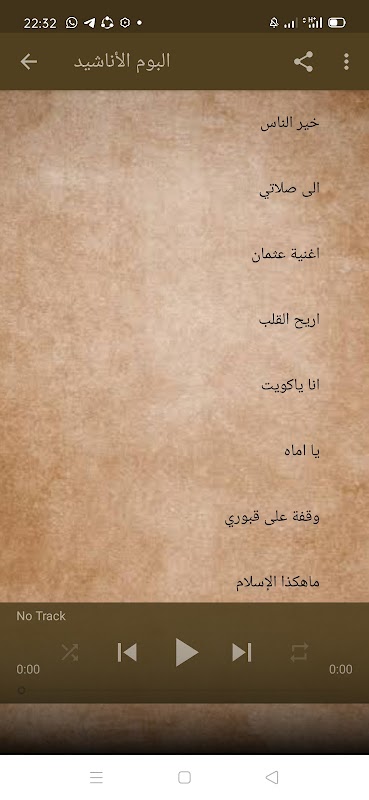 22:32
البوم الأناشيد
خير الناس
الى صلاتي
اغنية عثمان
اريح القلب
انا ياكويت
يا اماه
وقفة على قبوري
ماهكذا الإسلام
No Track
0:00
0:00